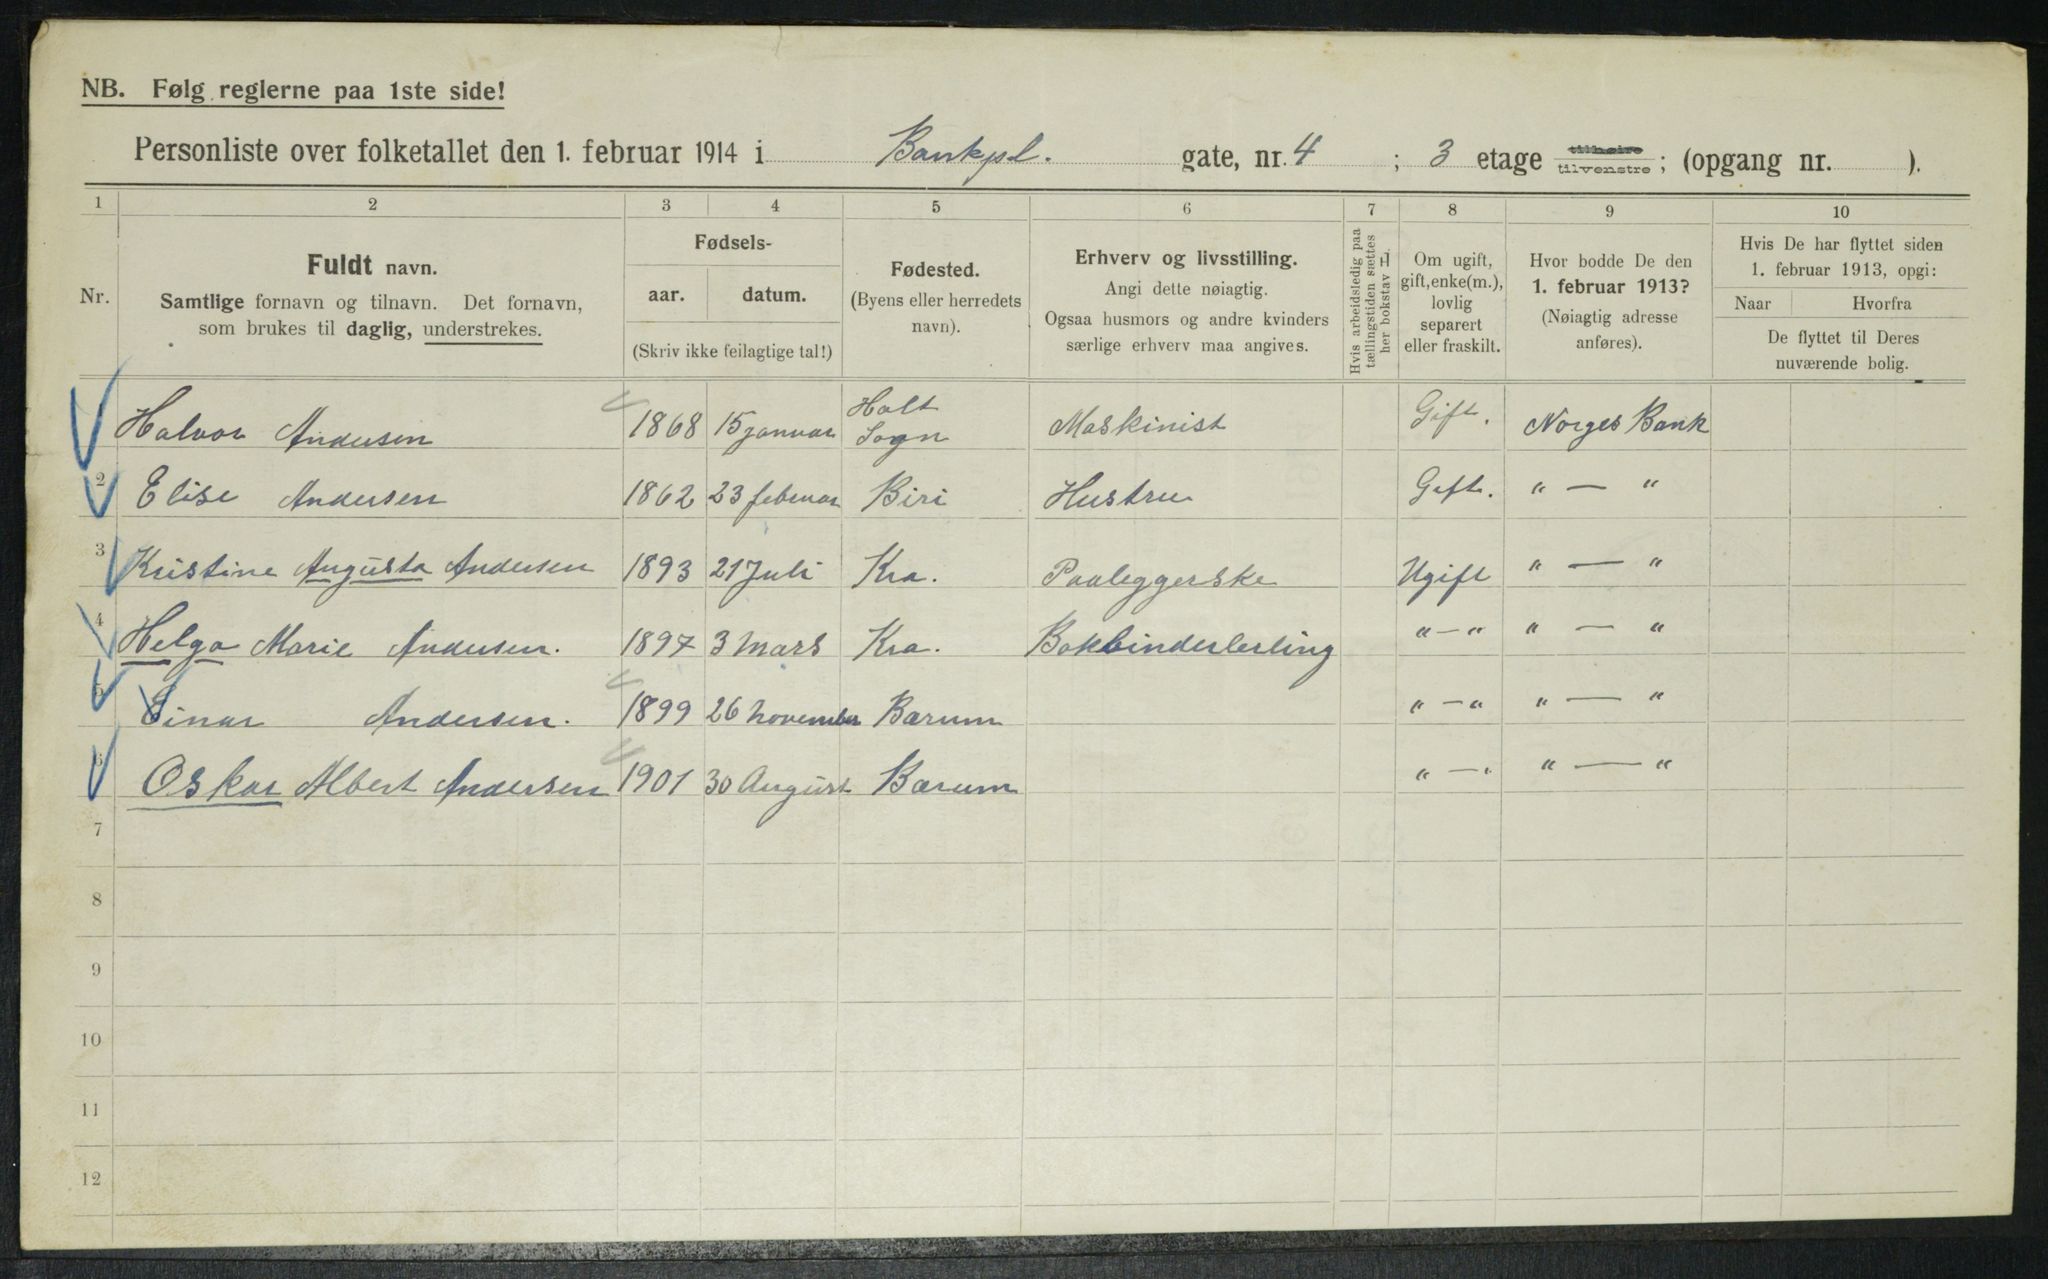 NB. Følg reglerne paa 1ste side!
Personliste over folketallet den 1. februar 1914 i Bankpl. gate, nr. 4 ; 3 etage tilhøire tilvenstre ; (opgang nr. ).
1 2 3 4 5 6 7 8 9 10
Nr.
Fuldt navn.
Samtlige fornavn og tilnavn. Det fornavn,
som brukes til daglig, understrekes.
Fødsels-
aar. datum.
(Skriv ikke feilagtige tal!)
Fødested.
(Byens eller herredets
navn).
Erhverv og livsstilling.
Angi dette nøiagtig.
Ogsaa husmors og andre kvinders
særlige erhverv maa angives.
Hvis arbeidsledig paa
tællingstiden sættes
her bokstav H.
Om ugift,
gift, enke(m.),
lovlig
separert
eller fraskilt.
Hvor bodde De den
1. februar 1913?
(Nøiagtig adresse
anføres).
Hvis De har flyttet siden
1. februar 1913, opgi:
Naar Hvorfra
De flyttet til Deres
nuværende bolig.
Halvor Andersen 1868 15 januar Holt Sogn Maskinist Gift. Norges Bank
2 Elise Andersen 1862 23 februar Biri Hustru Gift. " — "
3 Kristine Augusta Andersen 1893 21 Juli Kra. Paaleggerske Ugift " — "
4 Helga Marie Andersen. 1897 3 Mars Kra. Bokbinderlerling " — " " — "
5 Einar Andersen. 1899 26 November Bærum " — " " — "
6 Oskar Albert Andersen 1901 30 August Bærum " — " " — "
7
8
9
10
11
12